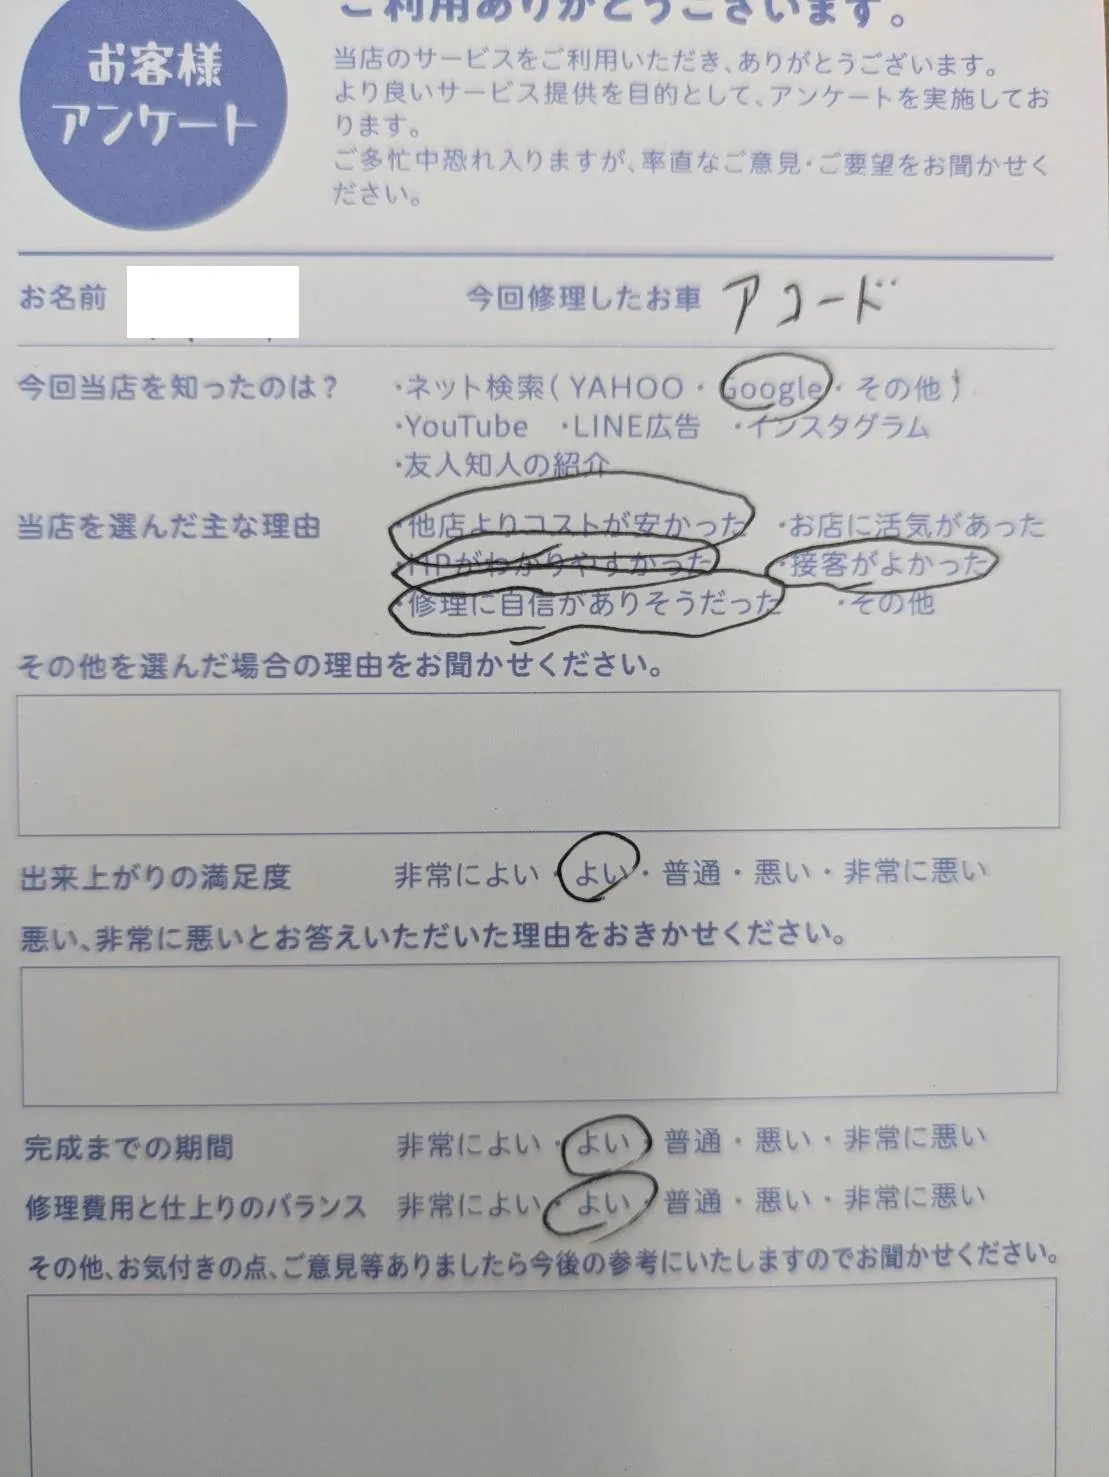 ご利用ありがとうございます。
お客様
アンケート
当店のサービスをご利用いただき、ありがとうございます。
より良いサービス提供を目的として、アンケートを実施してお
ります。
ご多忙中恐れ入りますが、率直なご意見・ご要望をお聞かせく
ださい。
お名前 今回修理したお車 アコード
今回当店を知ったのは？ ・ネット検索（ YAHOO ・ Google ・ その他 ）
・YouTube ・LINE広告 ・インスタグラム
・友人知人の紹介
当店を選んだ主な理由 ・他店よりコストが安かった ・お店に活気があった
・HPがわかりやすかった ・接客がよかった
・修理に自信がありそうだった ・その他
その他を選んだ場合の理由をお聞かせください。
出来上がりの満足度 非常によい ・ よい ・ 普通 ・ 悪い ・ 非常に悪い
悪い、非常に悪いとお答えいただいた理由をおきかせください。
完成までの期間 非常によい ・ よい ・ 普通 ・ 悪い ・ 非常に悪い
修理費用と仕上りのバランス 非常によい ・ よい ・ 普通 ・ 悪い ・ 非常に悪い
その他、お気付きの点、ご意見等ありましたら今後の参考にいたしますのでお聞かせください。